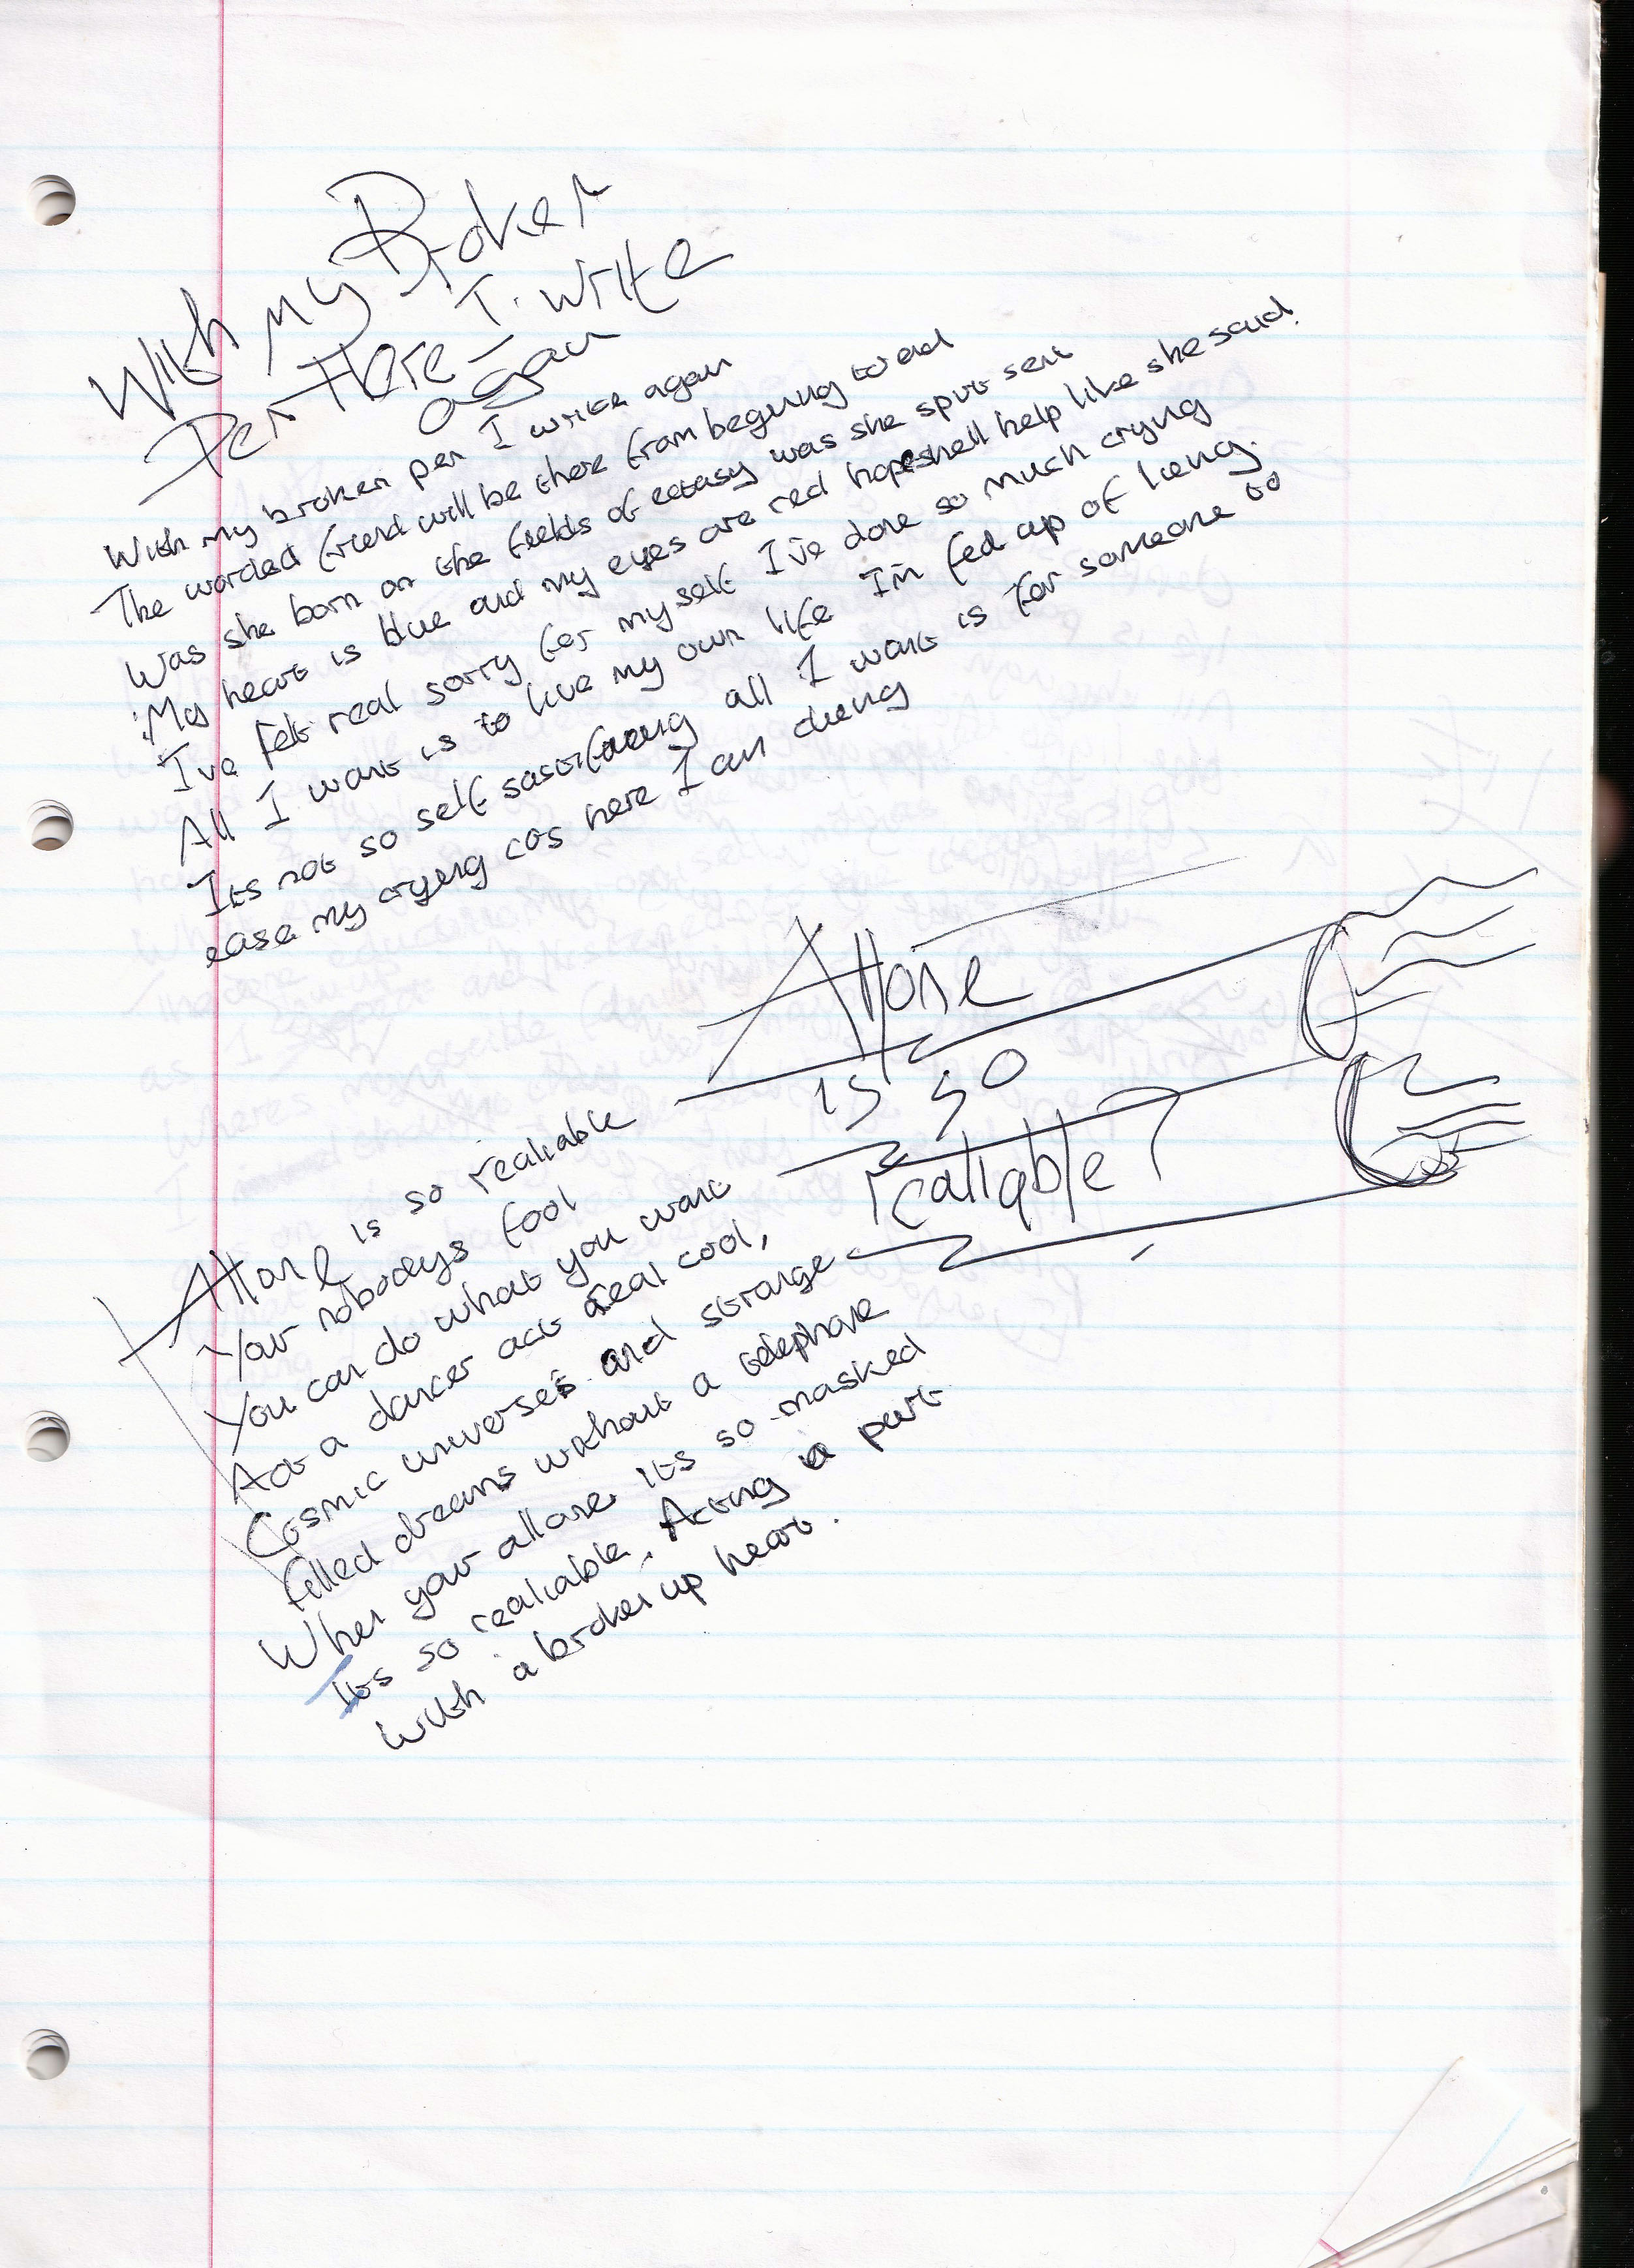 With my Broken
Pen Here I write
again
With my broken pen I write again
The worded friend will be there from beginng to end
Was she born on the fields of extasy was she spirt sent
My heart is blue and my eyes are red hope shell help like she said.
I've felt real sorry for my self I've done so much crying
All I want is to live my own life I'm fed up of lieng.
Its not so self sastifaieng all I want is for someone to
ease my cryeng cos here I am dieng
Allone
is so
realiable?
Allone is so realiable
Your nobodys fool
You can do what you want
Act a dancer act real cool,
Cosmic universes and strange
filled dreams without a telephone
When your allone its so masked
Its so realiable. Acting a part
With a broken up heart.